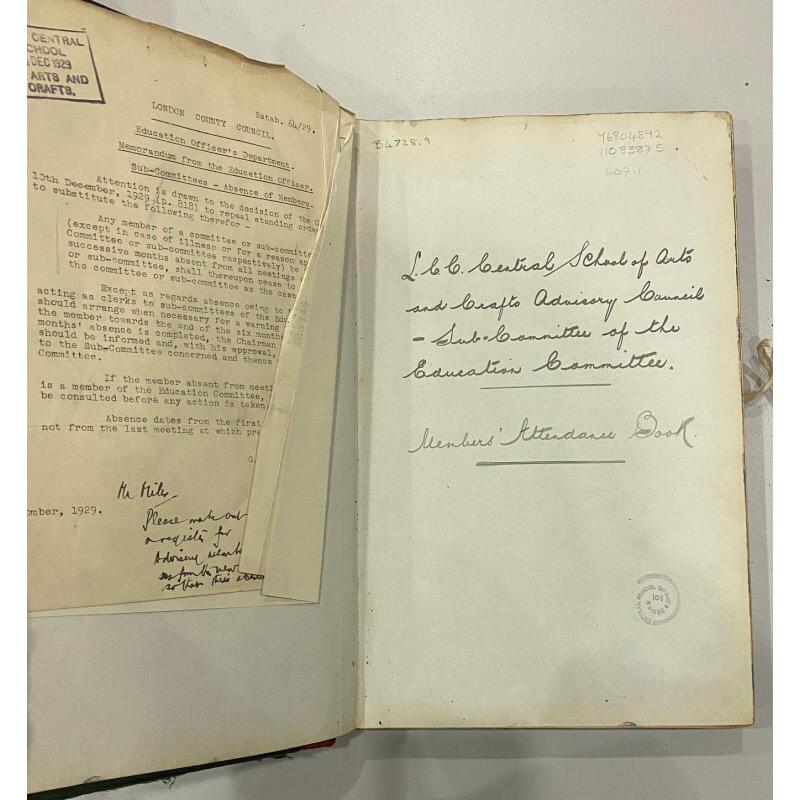 CENTRAL
SCHOOL
DEC 1929
ARTS AND
CRAFTS.
Estab. 64/29.
LONDON COUNTY COUNCIL.
Education Officer's Department.
Memorandum from the Education Officer.
Sub-Committees - Absence of Members.
Attention is drawn to the decision of the C
10th December, 1929 (p. 818) to repeal standing order
to substitute the following therefor -
Any member of a committee or sub-committe
(except in case of illness or for a reason ap
Committee or sub-committee respectively) be
successive months absent from all meetings
or sub-committee, shall thereupon cease to
the committee or sub-committee as the case
Except as regards absence owing to
acting as clerks to sub-committees of the Edu
should arrange when necessary for a warning
the member towards the end of the six months
months' absence is completed, the Chairman
should be informed and, with his approval,
to the Sub-Committee concerned and thence
Committee.
If the member absent from meeti
is a member of the Education Committee,
be consulted before any action is taken
Absence dates from the first
not from the last meeting at which pre
G.
ember, 1929.
Mr Miles
Please make out
a register for
Advisory
so that
B4728.9
46804892
11083875
607.1
L.C.C. Central School of Arts
and Crafts Advisory Council
- Sub-Committee of the
Education Committee.
Members' Attendance Book.
CENTRAL SCHOOL OF ART & DESIGN
101